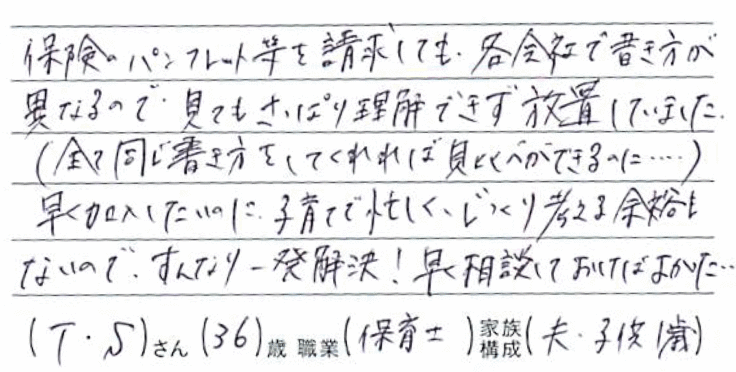 保険のパンフレット等を請求しても、各会社で書き方が
異なるので、見てもさっぱり理解できず放置していました。
(全て同じ書き方をしてくれれば見比べができるのに‥‥)
早く加入したいのに、子育てで忙しく、じっくり考える余裕も
ないので、すんなり一発解決！早く相談しておけばよかった…
(T・S)さん(36)歳 職業(保育士)家族構成(夫・子供1歳)